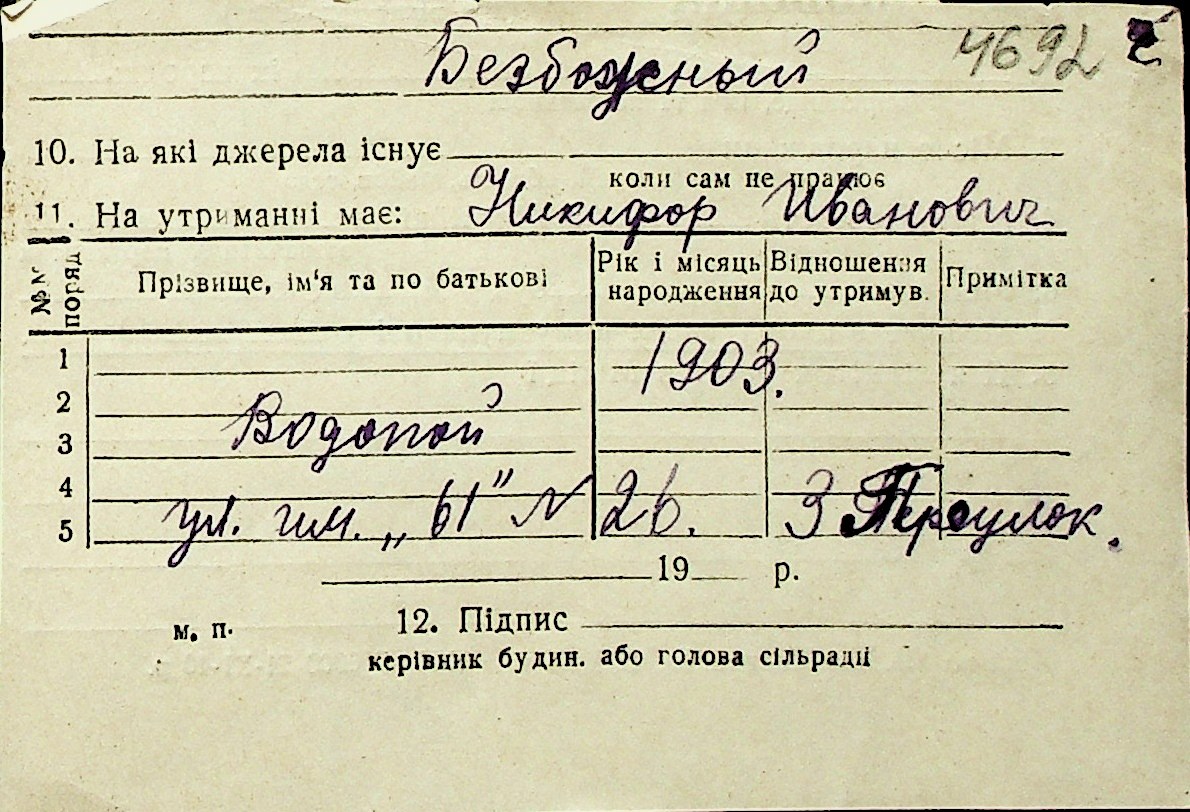 4692
Безбожный
10. На які джерела існує
коли сам не працює
11. На утриманні має: Никифор Иванович
№№ поряд
Прізвище, ім'я та по батькові
Рік і місяць народження
Відношення до утримув.
Примітка
1
1903.
2
3 Водопой
4
5 ул. им. „61" N 26. 3 Переулок.
19 р.
м. п. 12. Підпис
керівник будин. або голова сільради